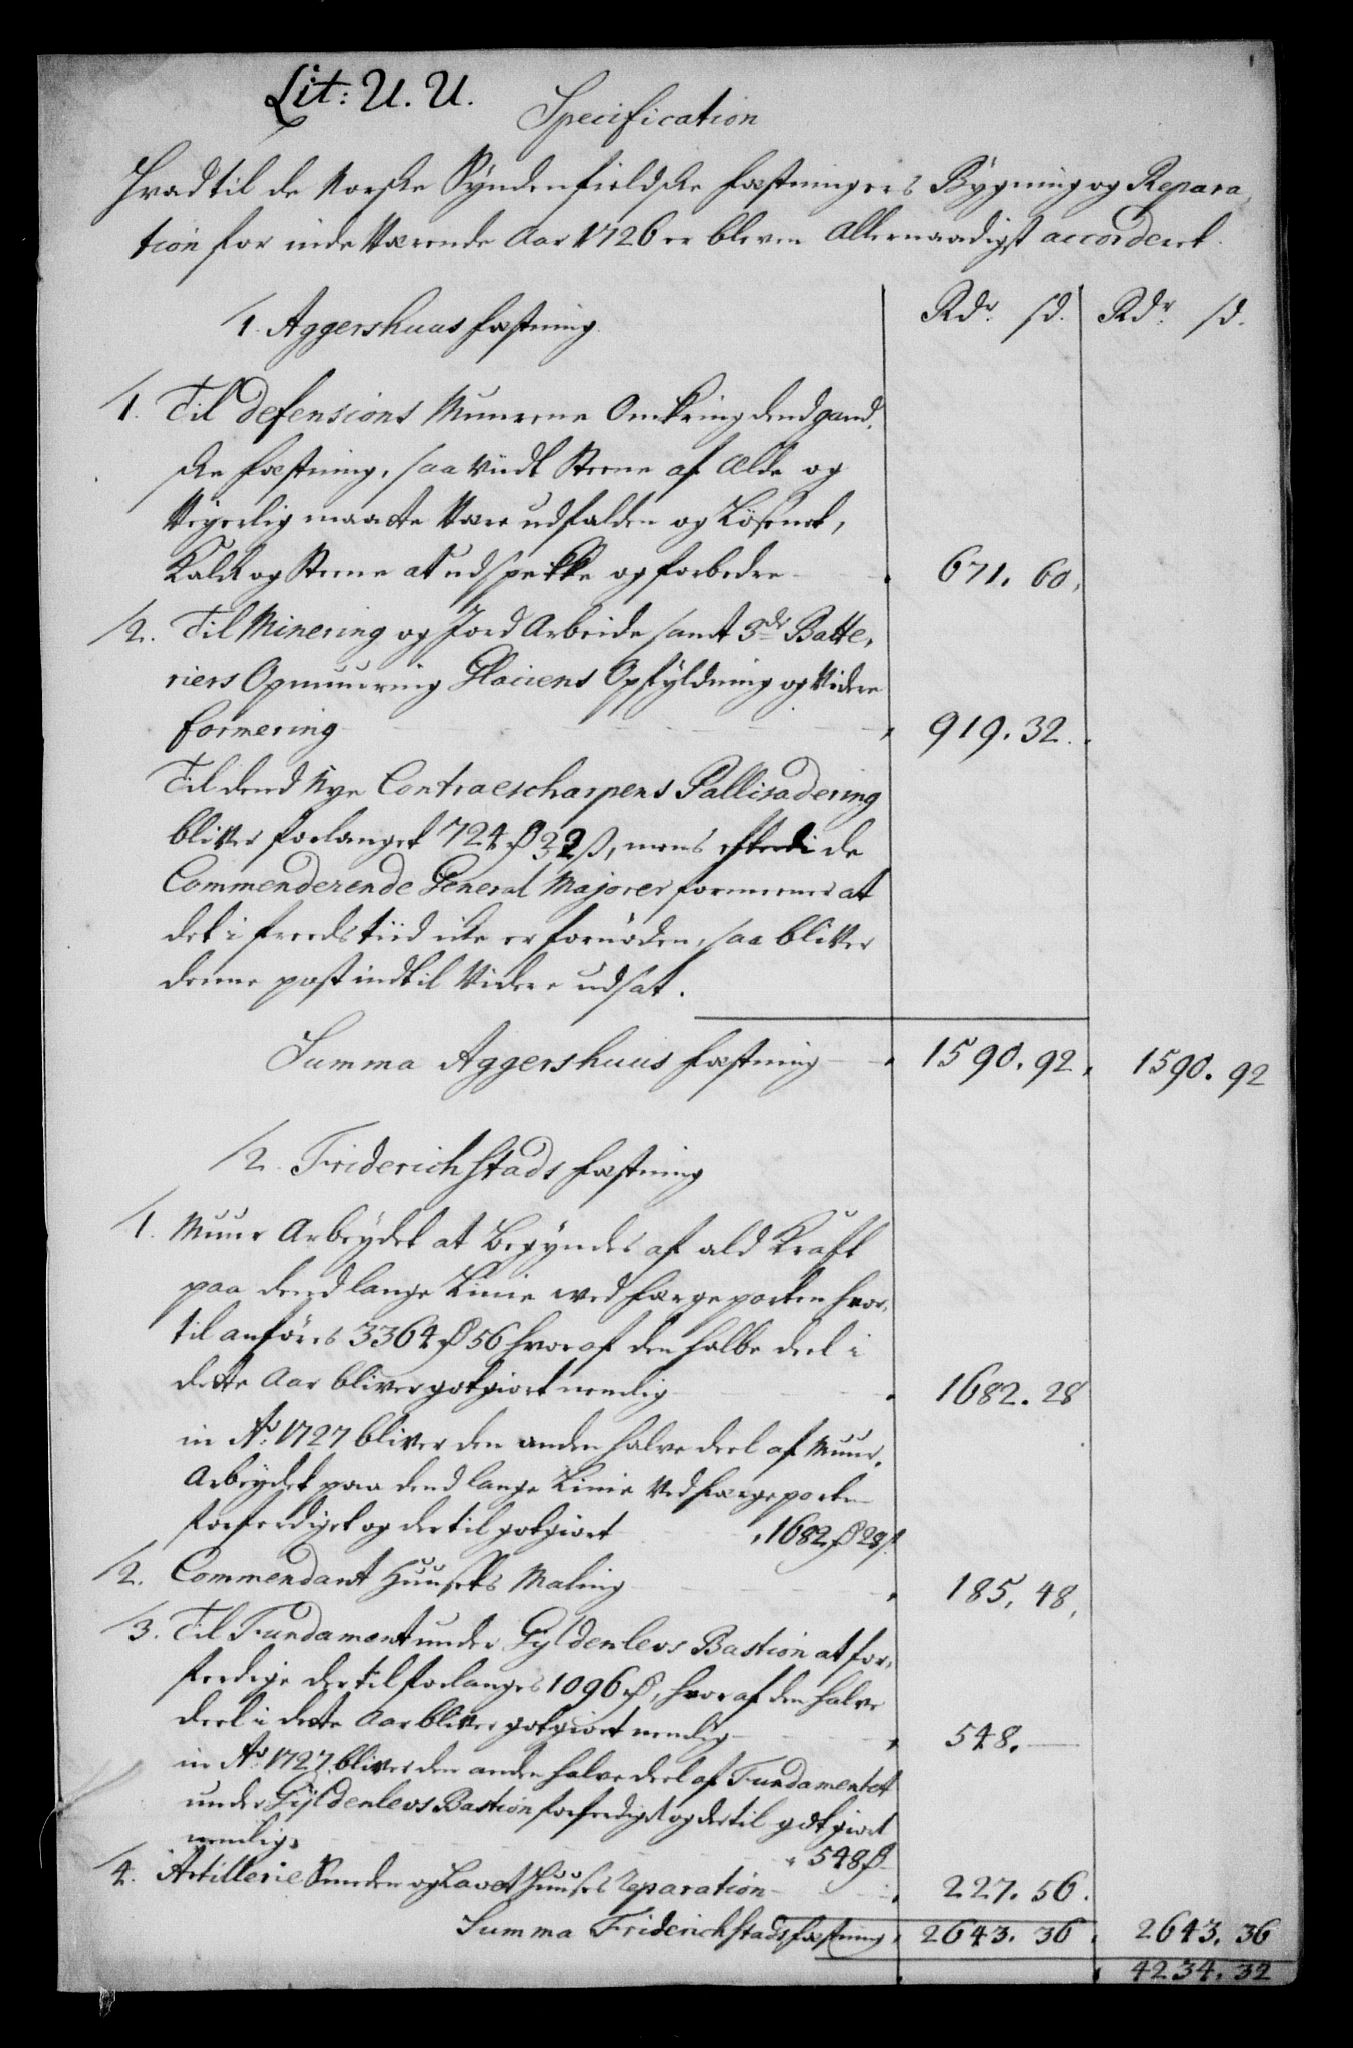 Lit: U. U.
Specification
Hvad til de Norske Syndenfieldske Fæstningers Bygning og Repara,
tion for inde Værende Aar 1726 er bleven Allernaadigst accorderet.
Rdr. sd. Rdr. sd.
1. Aggershuus Fæstning
1. Til Defensions Muurene Omkring dend gand,
ske Fæstning, saa viidt Steene af Ælde og
maatte være udfalden og Løsnet,
Kalk og Steene at udspekke og forbedre 671. 60.
2. Til Minering og Jord Arbeide samt 3de Batte,
riers Opmuuring Glaciens Opfyldning og Videre
Formering 919. 32.
Til dend Nye Contraescharpens Pallisadering
bliver forlanget 724 rd 32 s, mens efterdi de
Commenderende General Majorer formeener at
det i freeds tiid icke er fornøden, saa bliver
denne post indtil Videre udsat.
Summa Aggershuus Fæstning 1590. 92. 1590. 92
2. Friderichstads Fæstning
1. Muur Arbeydet at Begyndes af ald Kraft
paa dend lange Linie ved Færgeporten hvor,
til anføres 3364 rd 56 hvoraf den halve deel i
dette Aar bliver godgiort nemlig 1682. 28
in Ao. 1727 bliver den anden halve deel af Muur,
Arbeydet paa dend lange Linie Ved Færgeporten
forferdiget og dertil godgiort 1682 rd 28 s.
2. Commendant Huusets Maling 185. 48.
3. Til Fundament under Gyldenleos Bastion at for,
ferdige dertil forlanges 1096 rd, hvoraf den halve
deel i dette Aar bliver godgiort nemlig 548. —
in Ao. 1727 bliver den anden halve deel af Fundamentet
under Gyldenleos Bastion forferdiget og dertil godgiort
nemlig 548 rd
4. Artillerie og Lavet Huuses reparation 227. 56.
Summa Friderichstads Fæstning 2643. 36. 2643. 36
4234. 32